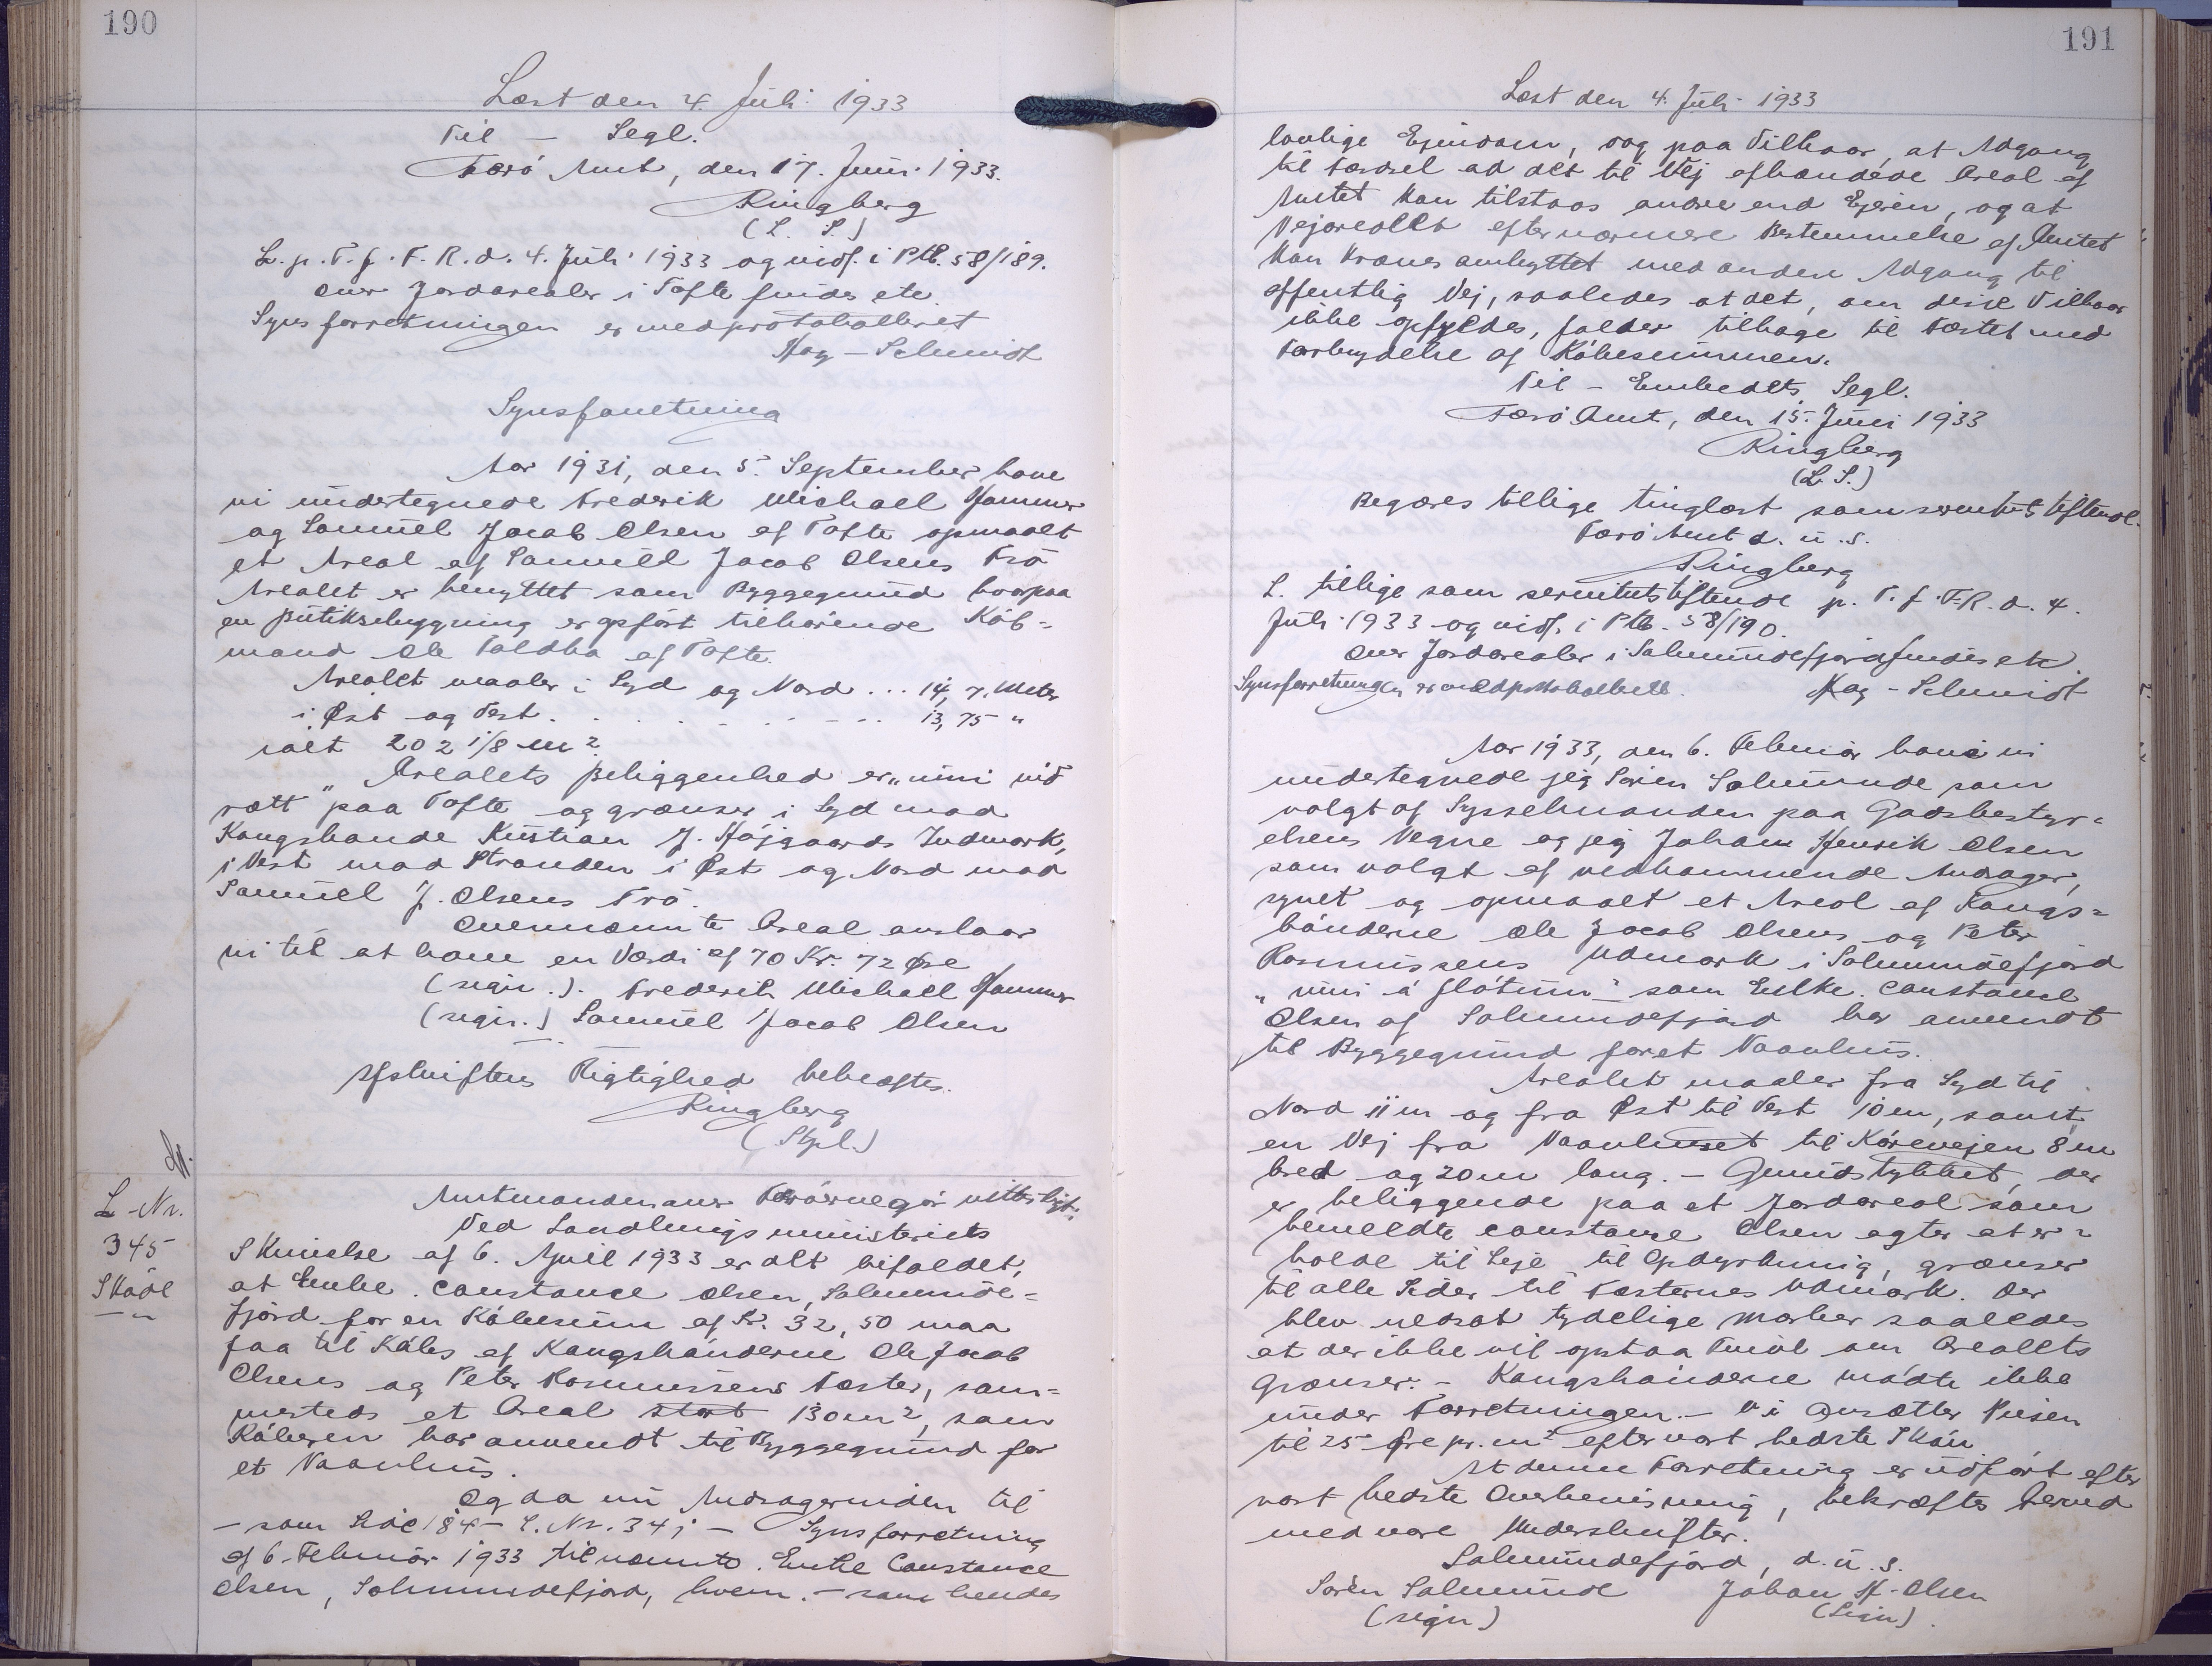 190
Læst den 4. Juli 1933
Til — Segl.
Færö Amt, den 17. Juni 1933.
Ringberg
(L. S.)
L. p. T. f. F. R. d. 4. Juli 1933 og vidf. i Ptb. 58/189.
over Jordarealer i Tofte findes etc.
Synsforretningen er medprotokolleret
Kay-Schmidt
Synsforretning
Aar 1931, den 5. September have
vi undertegnede Frederik Michael Hammer
og Samuel Jacob Olsen af Tofte opmaalt
et Areal af Samuel Jacob Olsens Trö
Arealet er benyttet som Byggegrund hvorpaa
en Butiksbygning er opfört tilhörende Köb=
mand Ole Toldbo af Tofte.
Arealet maaler i Syd og Nord ... 14,7 Meter
i Øst og Vest . . . . . . . . . 13,75 "
ialt 202 1/8 m².
Arealets Beliggenhed er „uni við
rætt" paa Tofte og grænser i Syd mod
Kongsbonde Kristian J. Höjgaards Indmark,
i Vest mod Stranden i Øst og Nord mod
Samuel J. Olsens Trö.
Ovennævnte Areal anslaar
vi til at have en Værdi af 70 Kr. 72 Øre
(sign.). Frederik Michael Hammer
(sign.) Samuel Jacob Olsen
Afskriftens Rigtighed bekræftes.
Ringberg
(Stpl.)
L-Nr.
345
Sköde
Amtmanden over Færöerne gör vitterligt:
Ved Landbrugsministeriets
Skrivelse af 6. April 1933 er det bifaldet,
at Enke. Constance Olsen, Salmunde=
fjörd for en Köbesum af Kr. 32,50 maa
faa til Köbs af Kongsbönderne Ole Jacob
Olsens og Peter Rasmussens Fæster, sam=
mesteds et Areal stort 130 m², som
Köberen har anvendt til Byggegrund for
et Naavhus.
Og da nu Andragerinden til
— som Side 184 — L. Nr. 341 — Synsforretning
af 6. Februar 1933 tilnævnte. Enke Constance
Olsen, Salmundefjord, hvem. — som hendes
191
Læst den 4. Juli 1933
lovlige Ejendom, dog paa Vilkaar, at Adgang
til Færdsel ad det til Vej afhændede Areal af
Amtet kan tilstaas andre end Ejeren, og at
Vejarealet efter nærmere Bestemmelse af Amtet
kan kræves ombyttet med anden Adgang til
offentlig Vej, saaledes at det, om disse Vilkaar
ikke opfyldes, falder tilbage til Fæstet med
Fortrydelse af Köbesummen.
Til — Embedets Segl.
Færö Amt, den 15. Juni 1933
Ringberg
(L. S.)
Begæres tillige tinglæst som servitutstiftende.
Færö Amt d. u. s.
Ringberg
L. tillige som servitutstiftende p. T. f. F. R. d. 4.
Juli 1933 og vidf. i Ptb. 58/190.
over Jordarealer i Salmundefjord findes etc.
Synsforretningen er medprotokolleret. Kay-Schmidt
Aar 1933, den 6. Februar have vi
undertegnede jeg Sören Salmunde som
valgt af Sysselmanden paa Godsbestyr=
elsens Vegne og jeg Johan Henrik Olsen
som valgt af vedkommende Andrager,
synet og opmaalt et Areal af Kongs=
bönderne Ole Jacob Olsens og Peter
Rasmussens Udmark i Salmundefjord
„uni á fløtuni" som Enke. Constance
Olsen af Salmundefjord har anvendt
til Byggegrund for et Naavhus.
Arealet maaler fra Syd til
Nord 11 m og fra Øst til Vest 10 m, samt
en Vej fra Naavhuset til Körevejen 8 m
bred og 20 m lang. — Grundstykket, der
er beliggende paa et Jordareal som
bemeldte Constance Olsen agter at er=
holde til Leje til Opdyrkning, grænser
til alle Sider til Fæsternes Udmark. Der
blev nedsat tydelige Mærker saaledes
at der ikke vil opstaa Tvivl om Arealets
Grænser. — Kongsbönderne mödte ikke
under Forretningen. — Vi ansætter Prisen
til 25 Øre pr. m² efter vort bedste Skön
At denne Forretning er udfört efter
vort bedste Overbevisning, bekræftes herved
med vore Underskrifter.
Salmundefjord, d. u. s.
Sören Salmunde Johan H. Olsen
(sign) (Sign).